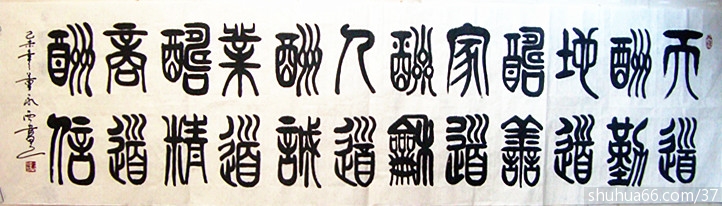 天道
酬勤
地道
酬善
家道
酬龢
人道
酬誠
業道
酬精
商道
酬信
shuhua66.com/37